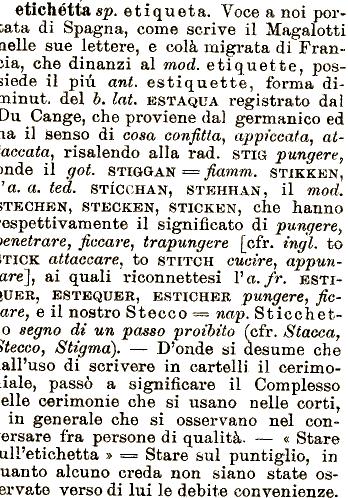 etichétta sp. etiqueta. Voce a noi por-
tata di Spagna, come scrive il Magalotti
nelle sue lettere, e colà migrata di Fran-
cia, che dinanzi al mod. etiquette, pos-
siede il più ant. estiquette, forma di-
minut. del b. lat. ESTAQUA registrato dal
Du Cange, che proviene dal germanico ed
ha il senso di cosa confitta, appiccata, at-
taccata, risalendo alla rad. STIG pungere,
onde il got. STIGGAN = fiamm. STIKKEN,
l'a. a. ted. STICCHAN, STEHHAN, il mod.
STECHEN, STECKEN, STICKEN, che hanno
respettivamente il significato di pungere,
penetrare, ficcare, trapungere [cfr. ingl. to
STICK attaccare, to STITCH cucire, appun-
tare], ai quali riconnettesi l'a. fr. ESTI-
QUER, ESTEQUER, ESTICHER pungere, fic-
care, e il nostro Stecco = nap. Sticchet-
to segno di un passo proibito (cfr. Stacca,
Stecco, Stigma). — D'onde si desume che
dall'uso di scrivere in cartelli il cerimo-
niale, passò a significare il Complesso
delle cerimonie che si usano nelle corti,
e in generale che si osservano nel con-
versare fra persone di qualità. — « Stare
sull'etichetta » = Stare sul puntiglio, in
quanto alcuno creda non siano state os-
servate verso di lui le debite convenienze.